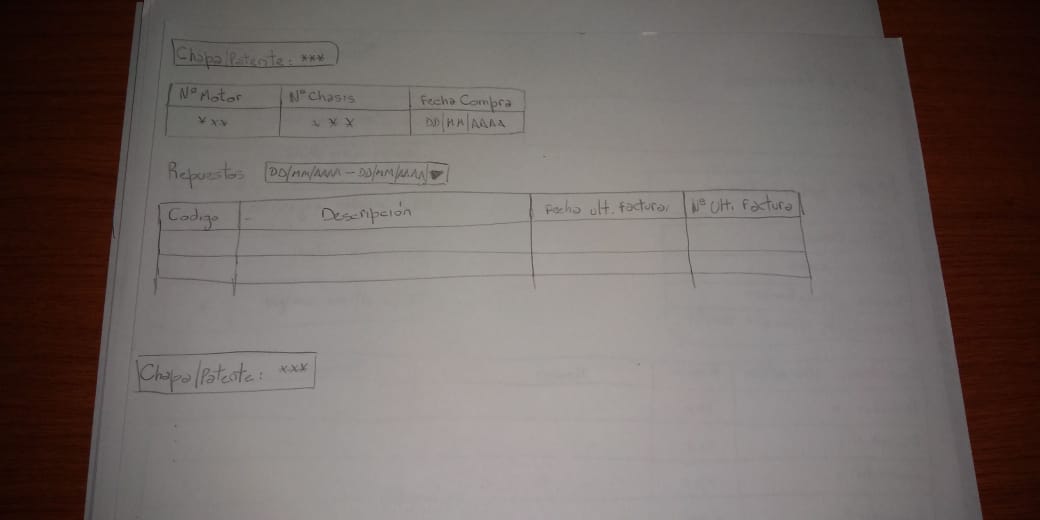 Chapa/Patente: ***
Nº Motor Nº Chasis Fecha Compra
*** *** DD/MM/AAAA
Repuestos DD/MM/AAAA - DD/MM/AAAA
Codigo Descripción Fecha ult. factura. Nº Ult. Factura
Chapa/Patente: ***